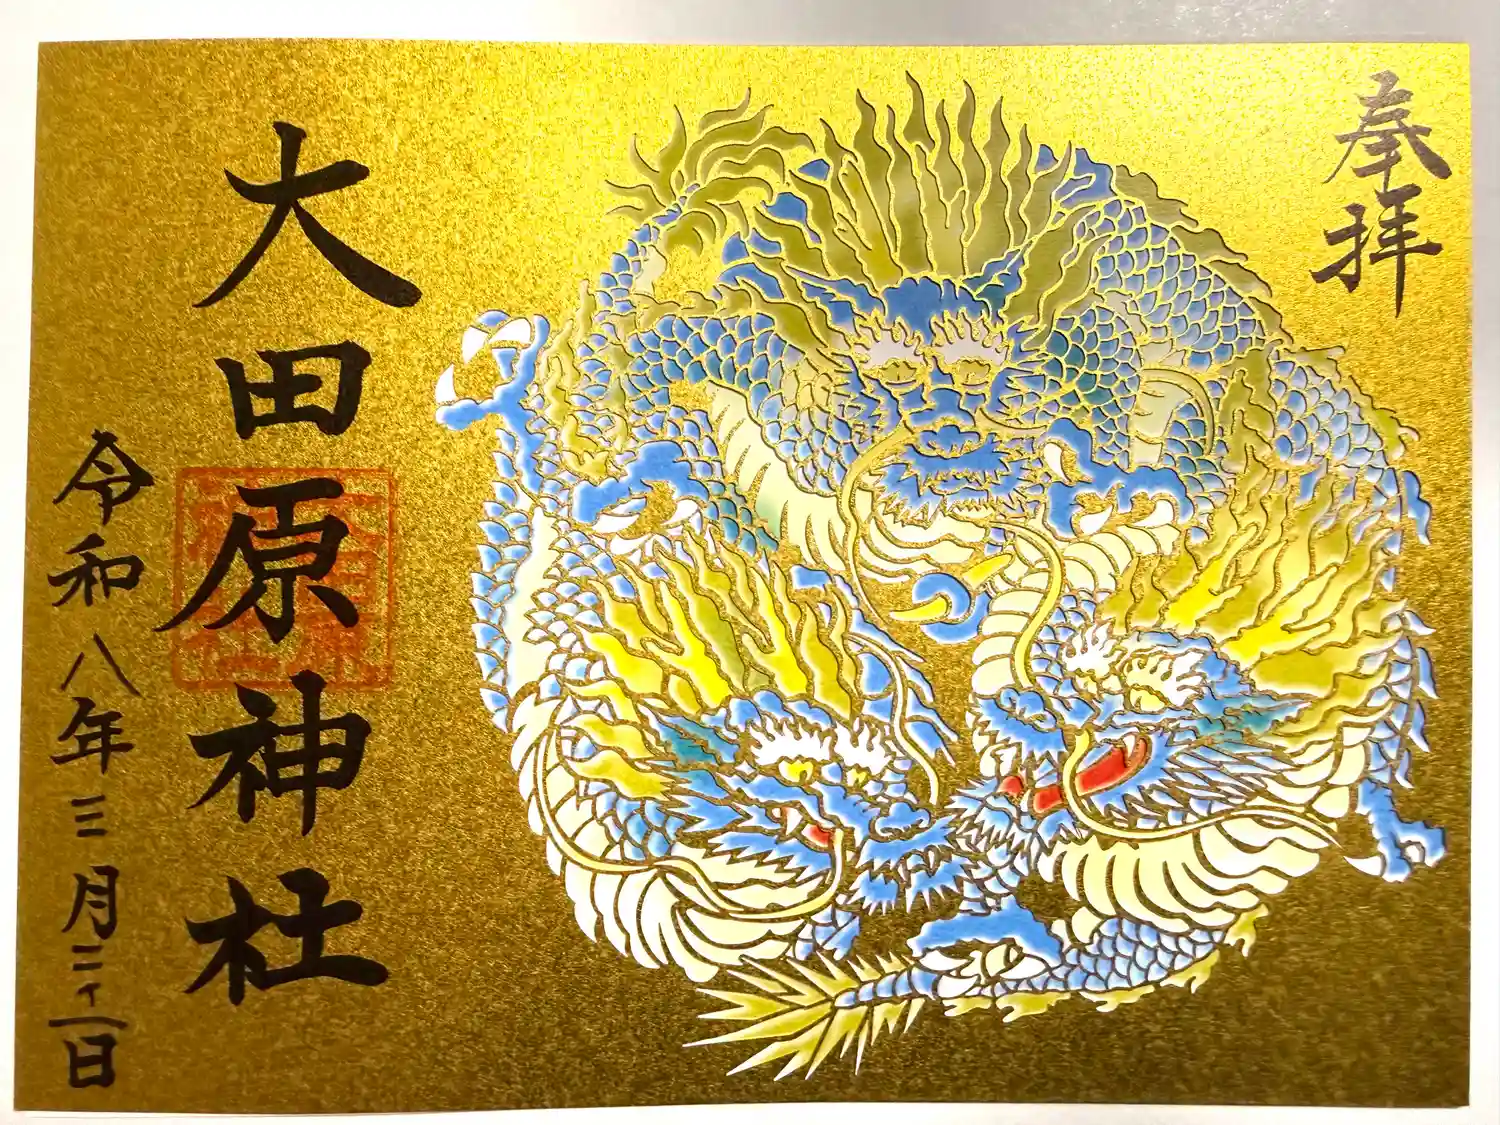 奉拝
大田原神社
令和八年三月 日